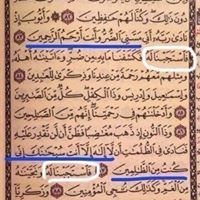 دُونَ ذَٰلِكَ وَكُنَّا لَهُمْ حَٰفِظِينَ ٨٢ وَأَيُّوبَ إِذْ
نَادَىٰ رَبَّهُۥٓ أَنِّي مَسَّنِيَ ٱلضُّرُّ وَأَنتَ أَرْحَمُ ٱلرَّٰحِمِينَ ٨٣
فَٱسْتَجَبْنَا لَهُۥ فَكَشَفْنَا مَا بِهِۦ مِن ضُرٍّ وَءَاتَيْنَٰهُ أَهْلَهُۥ
وَمِثْلَهُم مَّعَهُمْ رَحْمَةً مِّنْ عِندِنَا وَذِكْرَىٰ لِلْعَٰبِدِينَ ٨٤
وَإِسْمَٰعِيلَ وَإِدْرِيسَ وَذَا ٱلْكِفْلِ كُلٌّ مِّنَ ٱلصَّٰبِرِينَ ٨٥
وَأَدْخَلْنَٰهُمْ فِي رَحْمَتِنَآ إِنَّهُم مِّنَ ٱلصَّٰلِحِينَ ٨٦
وَذَا ٱلنُّونِ إِذ ذَّهَبَ مُغَٰضِبًا فَظَنَّ أَن لَّن نَّقْدِرَ عَلَيْهِ
فَنَادَىٰ فِي ٱلظُّلُمَٰتِ أَن لَّآ إِلَٰهَ إِلَّآ أَنتَ سُبْحَٰنَكَ إِنِّي
كُنتُ مِنَ ٱلظَّٰلِمِينَ ٨٧ فَٱسْتَجَبْنَا لَهُۥ وَنَجَّيْنَٰهُ
مِنَ ٱلْغَمِّ وَكَذَٰلِكَ نُۨجِي ٱلْمُؤْمِنِينَ ٨٨ وَزَكَرِيَّآ